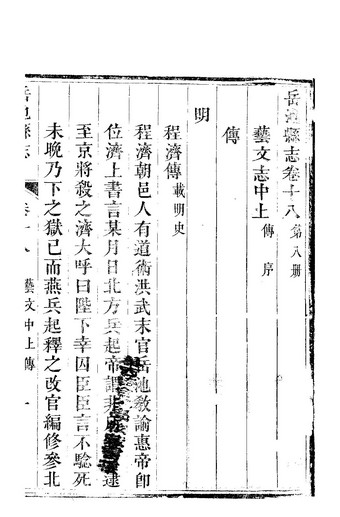 岳池縣志卷十八 第八册
藝文志中上 傳 序
傳
明
程濟傳 載明史
程濟朝邑人有道術洪武末官岳池敎諭惠帝卽
位濟上書言某月日北方兵起帝謂非
至京將殺之濟大呼曰陛下幸囚臣臣言不驗死
未晚乃下之獄已而燕兵起釋之改官編修參北
岳池縣志
卷十八 藝文中上傳 一